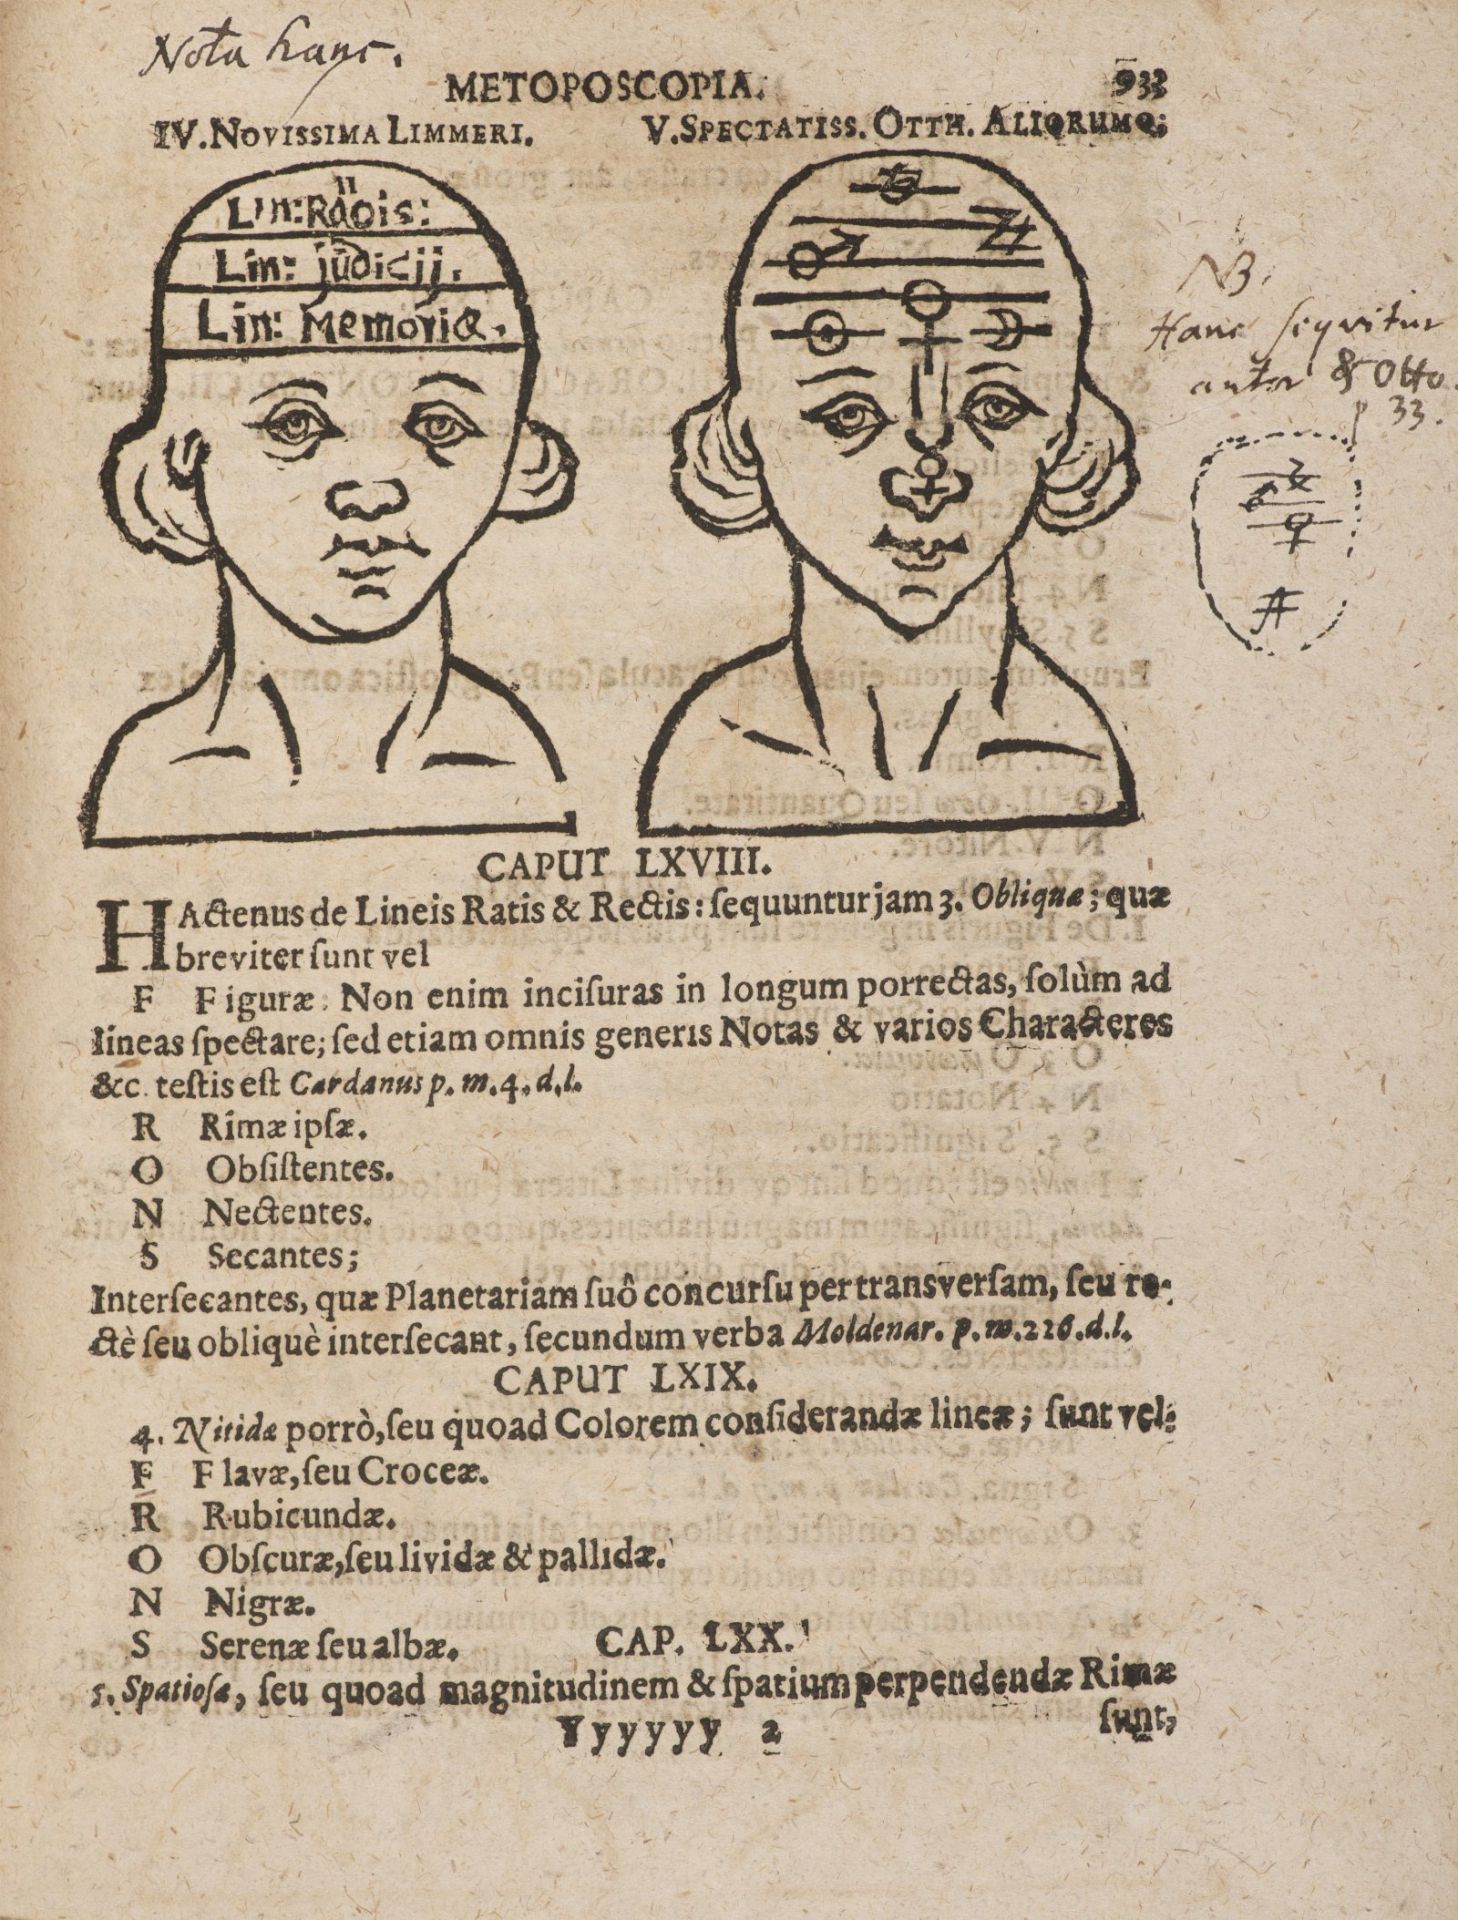 Nota hanc.
METOPOSCOPIA. 933
IV. NOVISSIMA LIMMERI. V. SPECTATISS. OTTH. ALIORUMQ;
Lin: Rãois:
Lin: judicij.
Lin: Memoriæ.
♄
♃
♂
☉ ♀ ☽
☿
NB.
Hanc sequitur
autor & Otto
p 33.
CAPUT LXVIII.
HActenus de Lineis Ratis & Rectis: ſequuntur jam 3. Obliquæ; quæ
breviter ſunt vel
F Figuræ. Non enim inciſuras in longum porrectas, ſolùm ad
lineas ſpectare; ſed etiam omnis generis Notas & varios Characteres
&c. teſtis eſt Cardanus p. m. 4. d. l.
R Rimæ ipſæ.
O Obſiſtentes.
N Nectentes.
S Secantes;
Interſecantes, quæ Planetariam ſuô concurſu per transverſam, ſeu re-
ctè ſeu obliquè interſecant, ſecundum verba Moldenar. p. m. 226. d. l.
CAPUT LXIX.
4. Nitidæ porrò, ſeu quoad Colorem conſiderandæ lineæ; ſunt vel:
F Flavæ, ſeu Croceæ.
R Rubicundæ.
O Obſcuræ, ſeu lividæ & pallidæ.
N Nigræ.
S Serenæ ſeu albæ. CAP. LXX.
5. Spatioſæ, ſeu quoad magnitudinem & ſpatium perpendendæ Rimæ
Yyyyyy 2 ſunt,